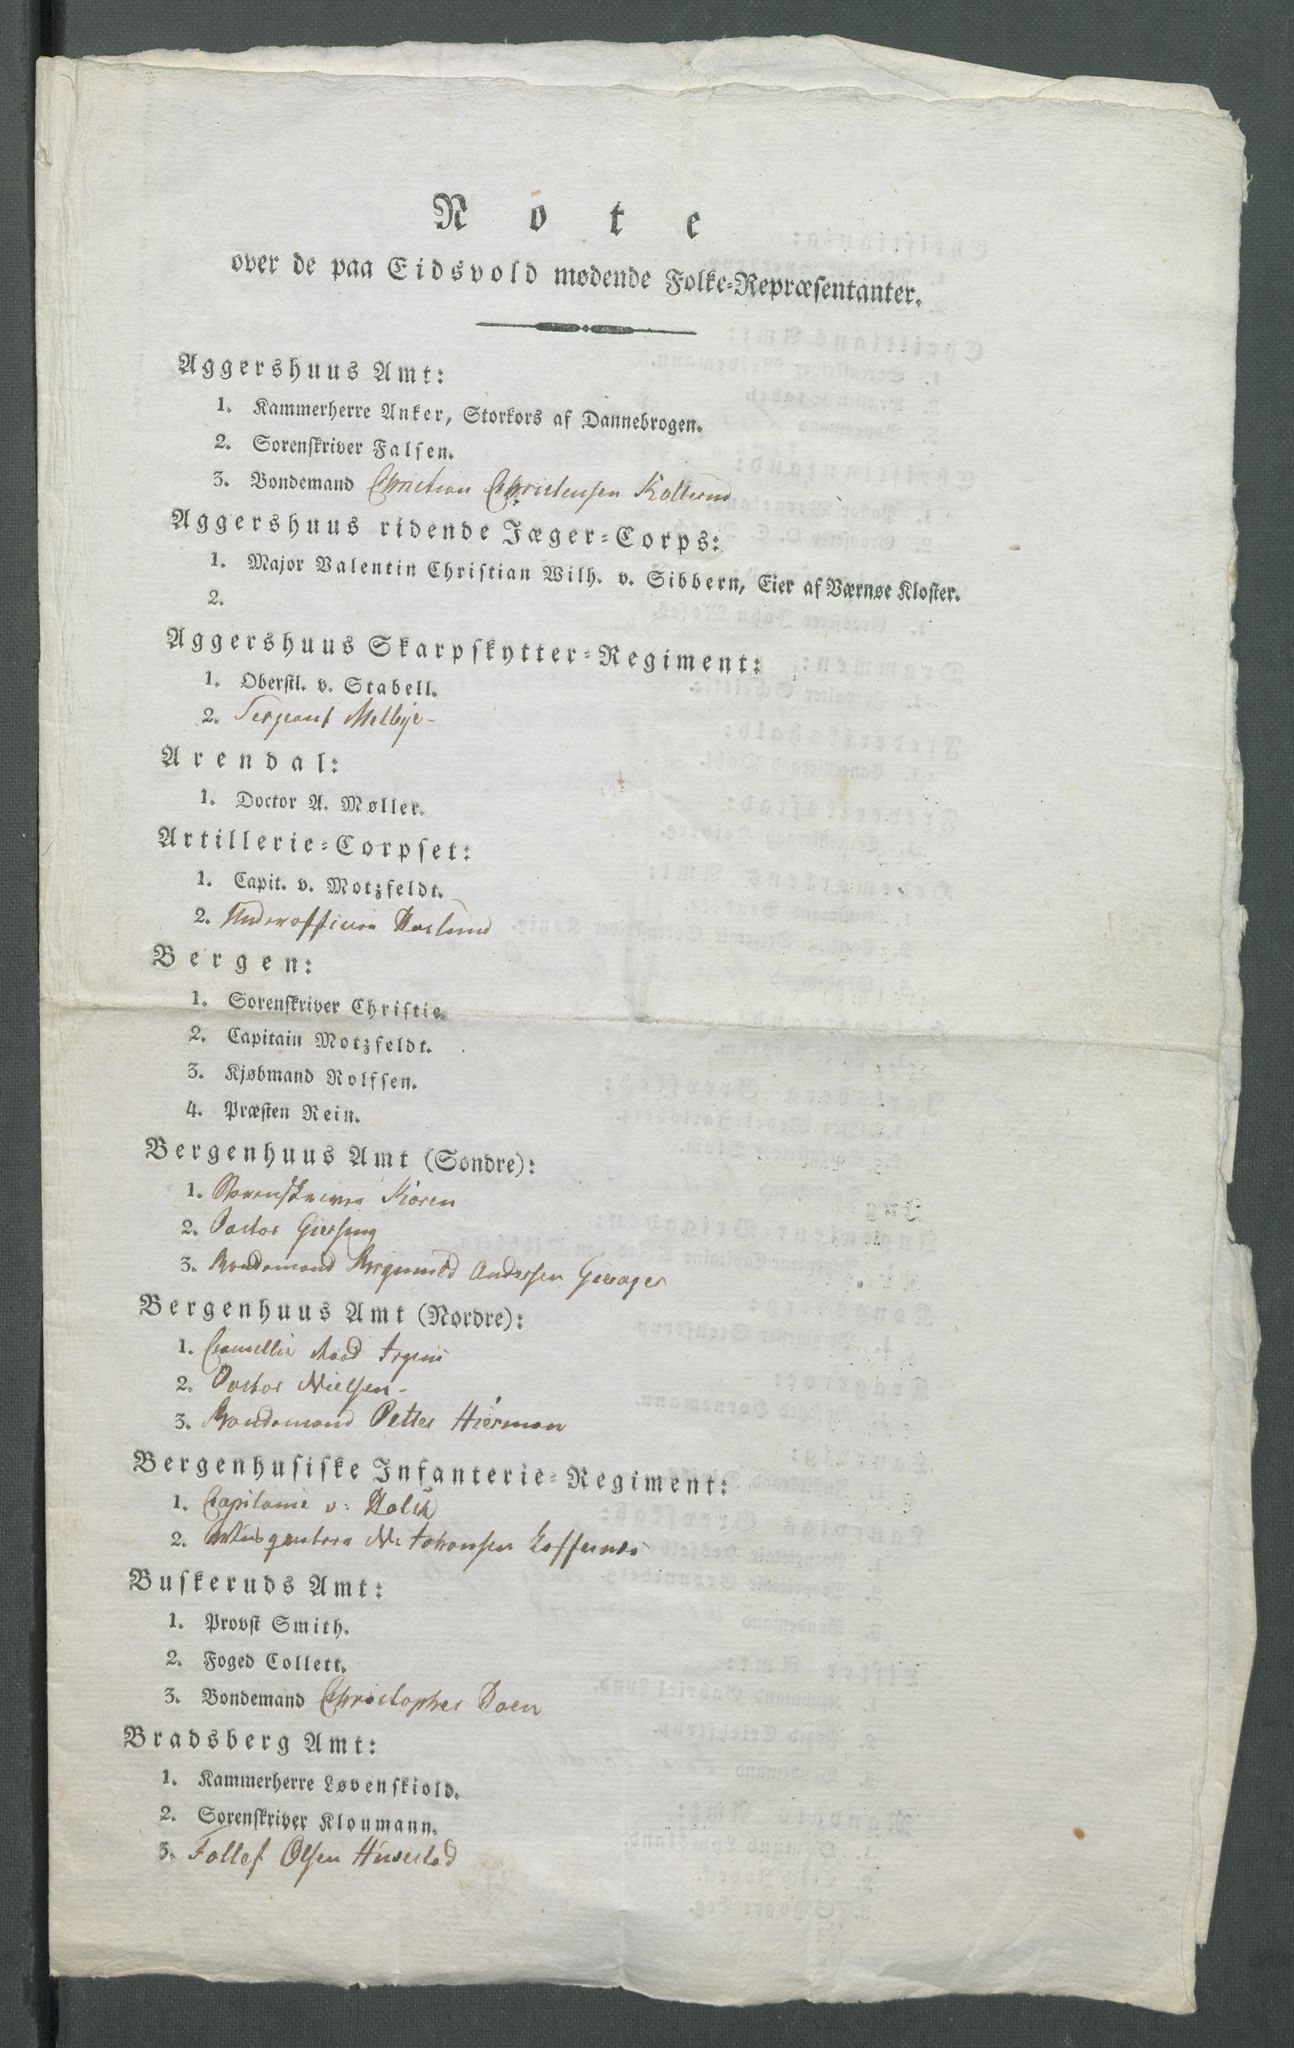 Note
over de paa Eidsvold mødende Folke-Repræsentanter.
Aggershuus Amt:
1. Kammerherre Anker, Storkors af Dannebrogen.
2. Sorenskriver Falsen.
3. Bondemand Christian Christensen Kollerud
Aggershuus ridende Jæger-Corps:
1. Major Valentin Christian Wilh. v. Sibbern, Eier af Værnøe Kloster.
2.
Aggershuus Skarpskytter-Regiment:
1. Oberstl. v. Stabell.
2. Sergeant Melbye
Arendal:
1. Doctor A. Møller.
Artillerie-Corpset:
1. Capit. v. Motzfeldt.
2. Underofficeer Haslund
Bergen:
1. Sorenskriver Christie.
2. Capitain Motzfeldt.
3. Kjøbmand Rolfsen.
4. Præsten Rein.
Bergenhuus Amt (Søndre):
1. Sorenskriver Koren
2. Pastor Giersing
3. Bondemand Brynnild Andersen Gierager
Bergenhuus Amt (Nordre):
1.
2. Pastor Nielsen
3. Bondemand Petter Hierman
Bergenhusiske Infanterie-Regiment:
1. Capitaine v. Holck
2. N. Johansen Loftenæs
Buskeruds Amt:
1. Provst Smith.
2. Foged Collett.
3. Bondemand Christopher Hoen
Bradsberg Amt:
1. Kammerherre Løvenskiold.
2. Sorenskriver Cloumann.
3. Tollef Olsen Huvestad